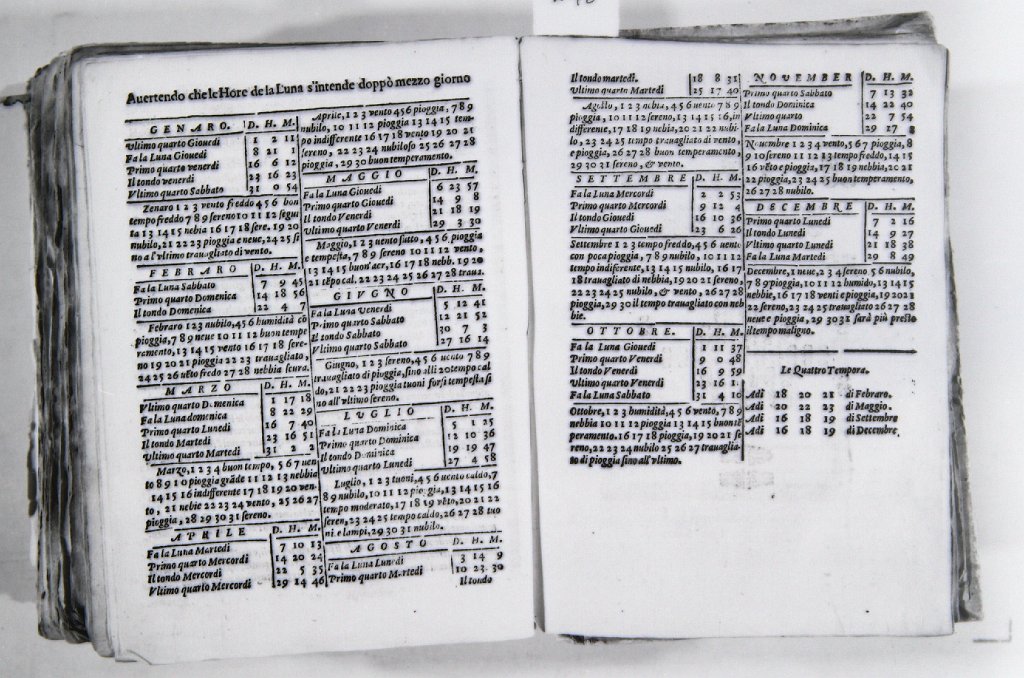 Auertendo che le Hore de la Luna s'intende doppò mezzo giorno
GENARO. D. H. M.
Vltimo quarto Giouedi 1 2 11
Fa la Luna Giouedi 8 21 1
Primo quarto venerdi 16 6 12
Il tondo venerdi 23 16 23
Vltimo quarto Sabbato 31 0 54
Zenaro 1 2 3 vento freddo 4 5 6 bon
tempo freddo 7 8 9 sereno 10 11 12 segui
ta 13 14 15 nebia 16 17 18 sere. 19 20
nubilo, 21 22 23 pioggia e neue, 24 25 si
no a l'vltimo trauagliato di vento.
FEBRARO D. H. M.
Fa la Luna Sabbato 7 9 45
Primo quarto Domenica 14 18 56
Il tondo Domenica 22 4 7
Febraro 1 2 3 nubilo, 4 5 6 humidità cō
pioggia, 7 8 9 neue 10 11 12 buon tempe
ramento, 13 14 15 vento 16 17 18 sere-
no 19 20 21 pioggia 22 23 trauagliato,
24 25 26 vēto fredo 27 28 nebbia scura.
MARZO D. H. M.
Vltimo quarto Domenica 1 17 18
Fa la Luna domenica 8 22 29
Primo quarto Lunedi 16 7 40
Il tondo Martedi 23 16 51
Vltimo quarto Martedi 31 2 2
Marzo, 1 2 3 4 buon tempo, 5 6 7 uen
to 8 9 10 pioggia grāde 11 12 13 nebbia
14 15 16 indifferente 17 18 19 20 ven-
to, 21 nebie 22 23 24 vento, 25 26 27
pioggia, 28 29 30 31 sereno.
APRILE D. H. M.
Fa la Luna Martedi 7 10 13
Primo quarto Mercordi 14 20 24
Il tondo Mercordi 22 5 35
Vltimo quarto Mercordi 29 14 46
Aprile, 1 2 3 vento 4 5 6 pioggia, 7 8 9
nubilo, 10 11 12 pioggia 13 14 15 tem-
po indifferente 16 17 18 vento 19 20 21
sereno, 22 23 24 nubiloso 25 26 27 28
pioggia, 29 30 buon temperamento.
MAGGIO D. H. M.
Fa la Luna Giouedi 6 23 57
Primo quarto Giouedi 14 9 8
Il tondo Venerdi 21 18 19
Vltimo quarto Venerdi 29 3 30
Maggio, 1 2 3 uento sutto, 4 5 6 pioggia
e tempesta, 7 8 9 sereno 10 11 12 vento,
13 14 15 buon'aer, 16 17 18 nebb. 19 20
21 tēpo cal. 22 23 24 25 26 27 28 traua.
GIVGNO D. H. M.
Fa la Luna Venerdi 5 12 41
Primo quarto Sabbato 12 21 52
Il tondo Sabbato 20 7 3
Vltimo quarto Sabbato 27 16 14
Giugno, 1 2 3 sereno, 4 5 6 uento 7 8 9
trauagliato di pioggia, sino alli 20 tempo cal
do, 21 22 23 pioggia tuoni forsi tempesta si
no all'vltimo sereno.
LUGLIO D. H. M.
Fa la Luna Dominica 5 1 25
Primo quarto Dominica 12 10 36
Il tondo Dominica 19 19 47
Vltimo quarto Lunedi 27 4 58
Luglio, 1 2 3 tuoni, 4 5 6 uento caldo, 7
8 9 nubilo, 10 11 12 pioggia, 13 14 15 16
tempo moderato, 17 18 19 vēto, 20 21 22
seren, 23 24 25 tempo caldo, 26 27 28 tuo
ni e lampi, 29 30 31 nubilo.
AGOSTO D. H. M.
Fa la Luna Lunedi 3 14 9
Primo quarto Martedi 10 23 30
Il tondo
Il tondo martedi. 18 8 31
Vltimo quarto Martedi 25 17 40
Agosto, 1 2 3 nebia, 4 5 6 uento 7 8 9
pioggia, 10 11 12 sereno, 13 14 15 16, in
differente, 17 18 19 nebia, 20 21 22 nubi-
lo, 23 24 25 tempo trauagliato di vento,
e pioggia, 26 27 28 buon temperamento,
29 30 31 sereno, & vento.
SETTEMBRE D. H. M.
Fa la Luna Mercordi 2 2 53
Primo quarto Mercordi 9 12 4
Il tondo Giouedi 16 10 36
Vltimo quarto Giouedi 23 6 26
Settembre 1 2 3 tempo freddo, 4 5 6 uento
con poca pioggia, 7 8 9 nubilo, 10 11 12
tempo indifferente, 13 14 15 nubilo, 16 17
18 trauagliato di nebbia, 19 20 21 sereno,
22 23 24 25 nubilo, & vento, 26 27 28
pioggia, 29 30 il tempo trauagliato con neb
bie.
OTTOBRE. D. H. M.
Fa la Luna Giouedi 1 11 37
Primo quarto Venerdi 9 0 48
Il tondo Venerdi 16 9 59
Vltimo quarto Venerdi 23 16 1.
Fa la Luna Sabbato 31 4 10
Ottobre, 1 2 3 humidità, 4 5 6 vento, 7 8 9
nebbia 10 11 12 pioggia 13 14 15 buon tē
peramento. 16 17 18 pioggia, 19 20 21 se
reno, 22 23 24 nubilo 25 26 27 trauaglia-
to di pioggia sino all'vltimo.
NOVEMBER D. H. M.
Primo quarto Sabbato 7 13 32
Il tondo Dominica 14 22 40
Vltimo quarto 22 7 54
Fa la Luna Dominica 29 17 8
Nouembre 1 2 3 4 vento, 5 6 7 pioggia, 8
9 10 sereno 11 12 13 tempo freddo, 14 15
16 vēto e pioggia, 17 18 19 nebbia, 20 21
22 pioggia, 23 24 25 buon temperamento,
26 27 28 nubilo.
DECEMBRE D. H. M.
Primo quarto Lunedi 7 2 16
Il tondo Lunedi 14 9 27
Vltimo quarto Lunedi 21 18 38
Fa la Luna Martedi 29 8 49
Decembre, 1 neue, 2 3 4 sereno 5 6 nubilo,
7 8 9 pioggia, 10 11 12 humido, 13 14 15
nebbie, 16 17 18 venti e pioggia, 19 20 21
22 sereno, 23 24 25 trauagliato 26 27 28
neue e pioggia, 29 30 31 sarà più presto
il tempo maligno.
Le Quattro Tempora.
Adi 18 20 21 di Febraro.
Adi 20 22 23 di Maggio.
Adi 16 18 19 di Settembre
Adi 16 18 19 di Decembre